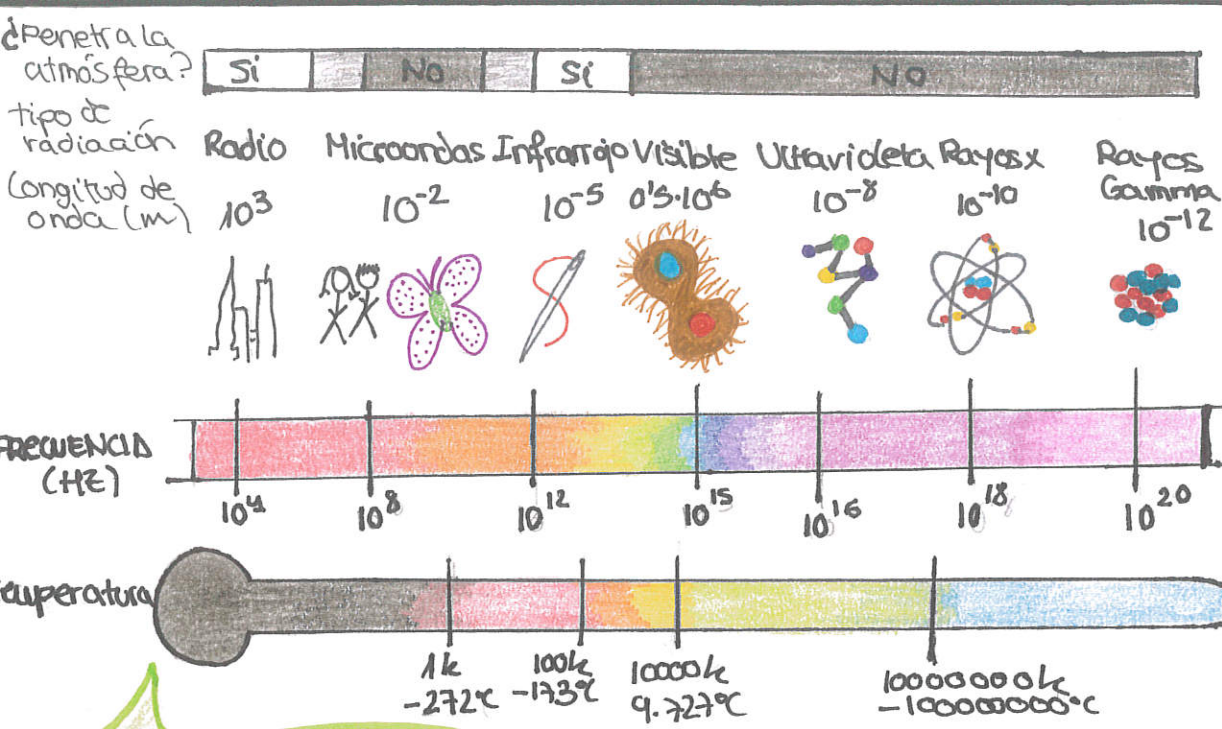 ¿Penetra la
atmósfera?
Si
No
Si
No
tipo de
radiación
Radio
Microondas
Infrarrojo
Visible
Ultravioleta
Rayos x
Rayos
Gamma
Longitud de
onda (m)
10³
10⁻²
10⁻⁵
0'5·10⁶
10⁻⁸
10⁻¹⁰
10⁻¹²
FRECUENCIA
(HZ)
10⁴
10⁸
10¹²
10¹⁵
10¹⁶
10¹⁸
10²⁰
Temperatura
1k
-272ºC
100k
-173ºC
10000k
9.727ºC
10000000k
-100000000ºC